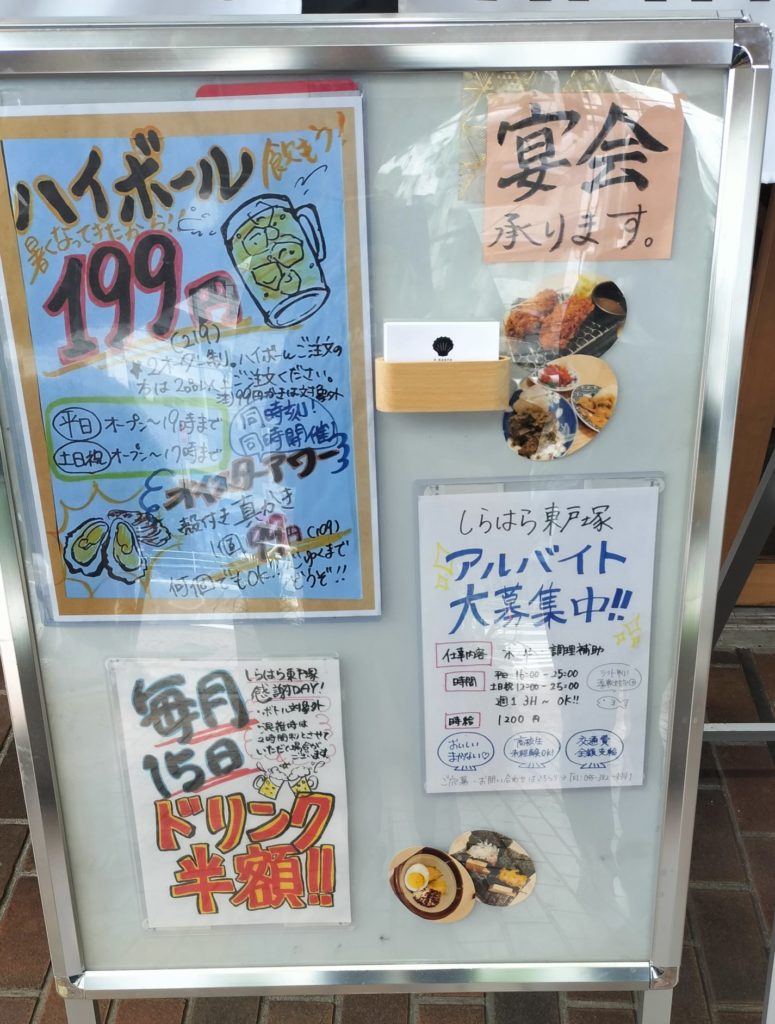 ハイボール
飲もう!
暑くなってきたから!
199円
(219)
★2オーダー制。ハイボールご注文の
方は200円以上ご注文ください。
注)99円かきは対象外
平日 オープン〜19時まで
土日祝 オープン〜17時まで
同時刻!
同時開催!
オイスターアワー
殻付き真かき
1個 99円 (109)
何個でもOK!!
どうぞ!!
宴会
承ります。
しらはら東戸塚
アルバイト
大募集中!!
仕事内容 ホール・調理補助
時間 平日 16:00〜25:00
土日祝 12:00〜25:00
週1 3H〜OK!!
時給 1200円
おいしい
まかない♡
高校生
未経験OK!
交通費
全額支給
毎月
15日
しらはら東戸塚
感謝DAY!
・ボトル対象外
・混雑時は
2時間制とさせて
いただく場合が
ございます
ドリンク
半額!!